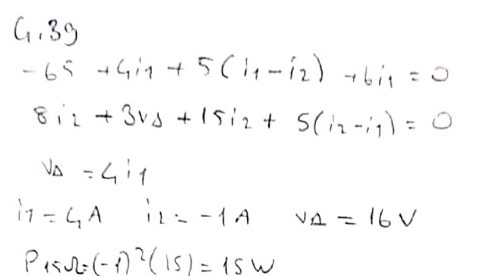 4.39
-65 + 4i1 + 5(i1 - i2) + 6i1 = 0
8i2 + 3vΔ + 15i2 + 5(i2 - i1) = 0
vΔ = 4i1
i1 = 4A i2 = -1A vΔ = 16V
P15Ω = (-1)²(15) = 15W